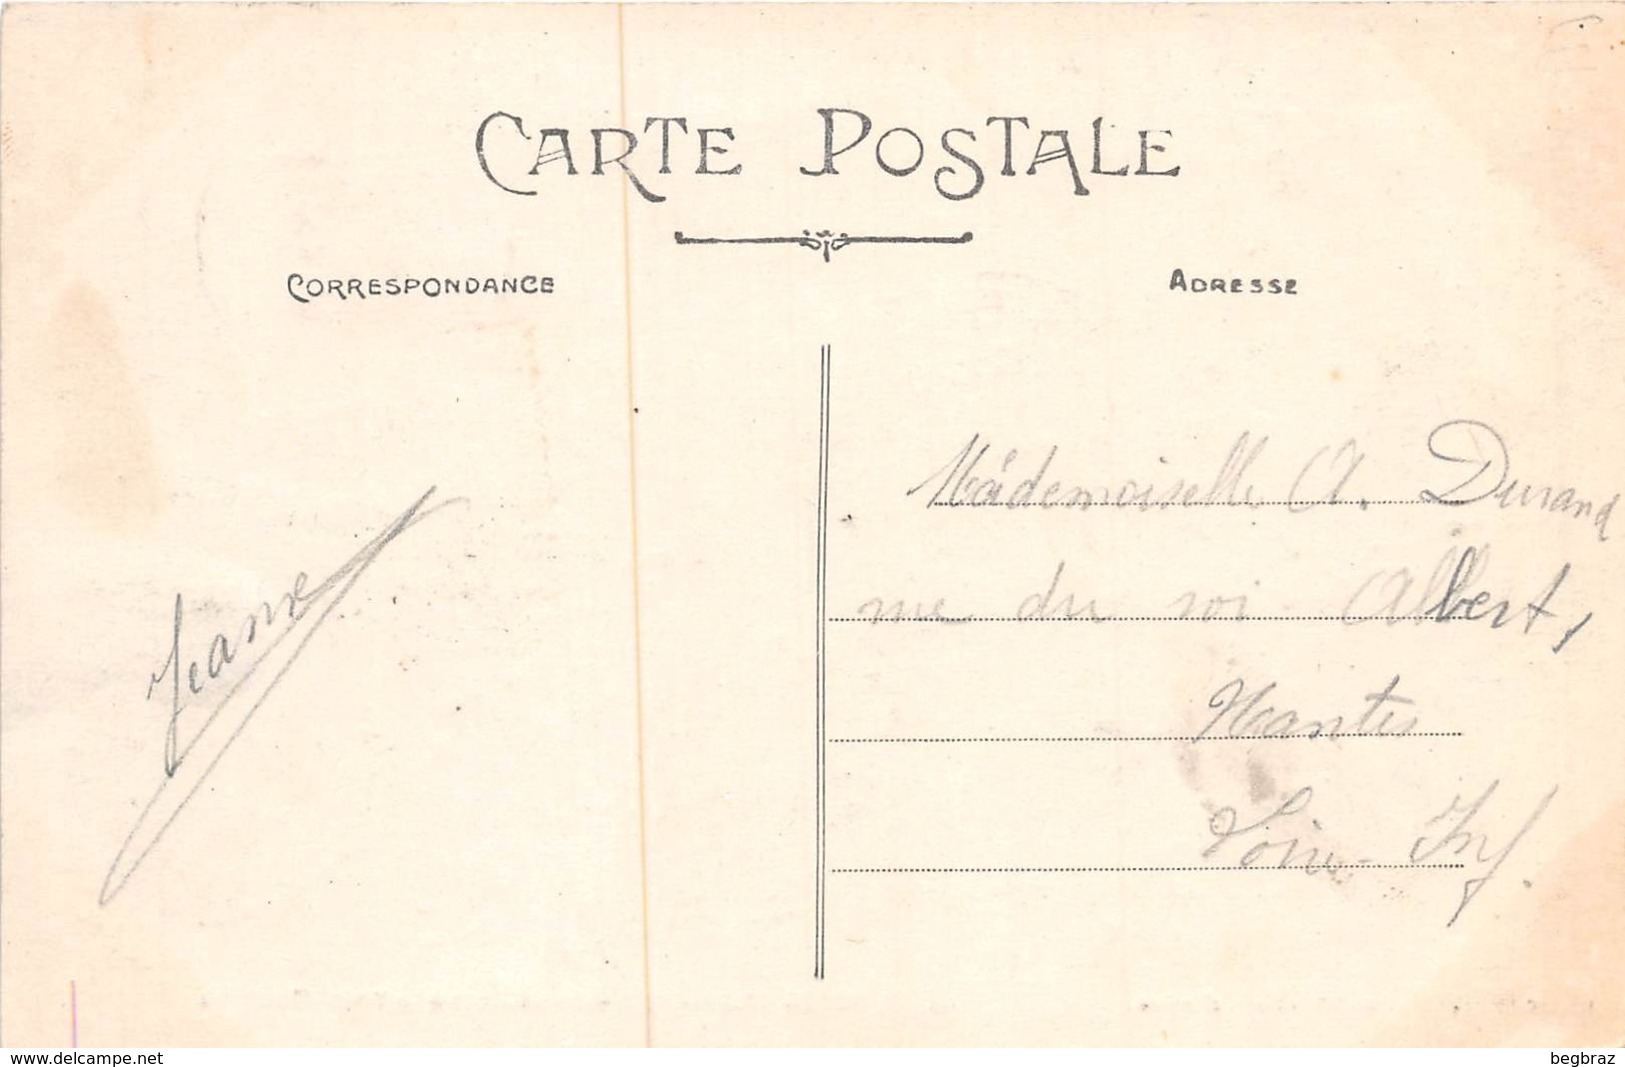 CARTE POSTALE
CORRESPONDANCE
ADRESSE
Jeanne
Mademoiselle A. Durand
rue du roi Albert,
Nantes
Loire-Inf.
www.delcampe.net
begbraz